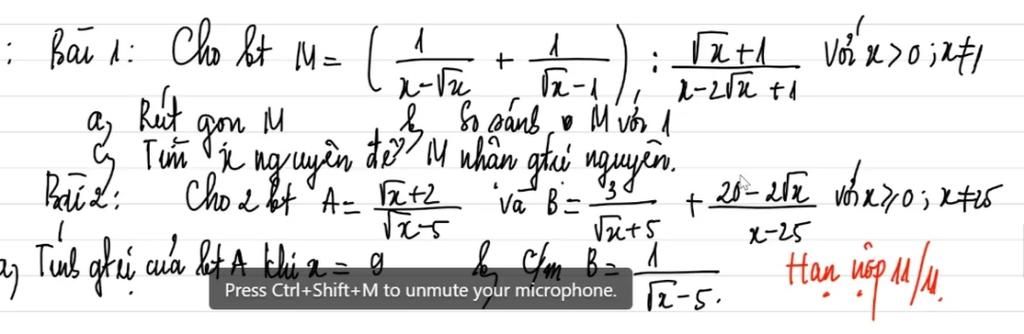 : Bài 1: Cho bt M = ( 1/(x-√x) + 1/(√x-1) ) : (√x+1)/(x-2√x+1) với x>0; x≠1
a, Rút gọn M b, So sánh M với 1
c, Tìm x nguyên để M nhận gtrị nguyên.
Bài 2: Cho 2 bt A = (√x+2)/(√x-5) và B = 3/(√x+5) + (20-2√x)/(x-25) với x≥0; x≠25
a, Tính gtrị của bt A khi x = 9 b, C/m B = 1/(√x-5). Hạn nộp 11/11.
Press Ctrl+Shift+M to unmute your microphone.